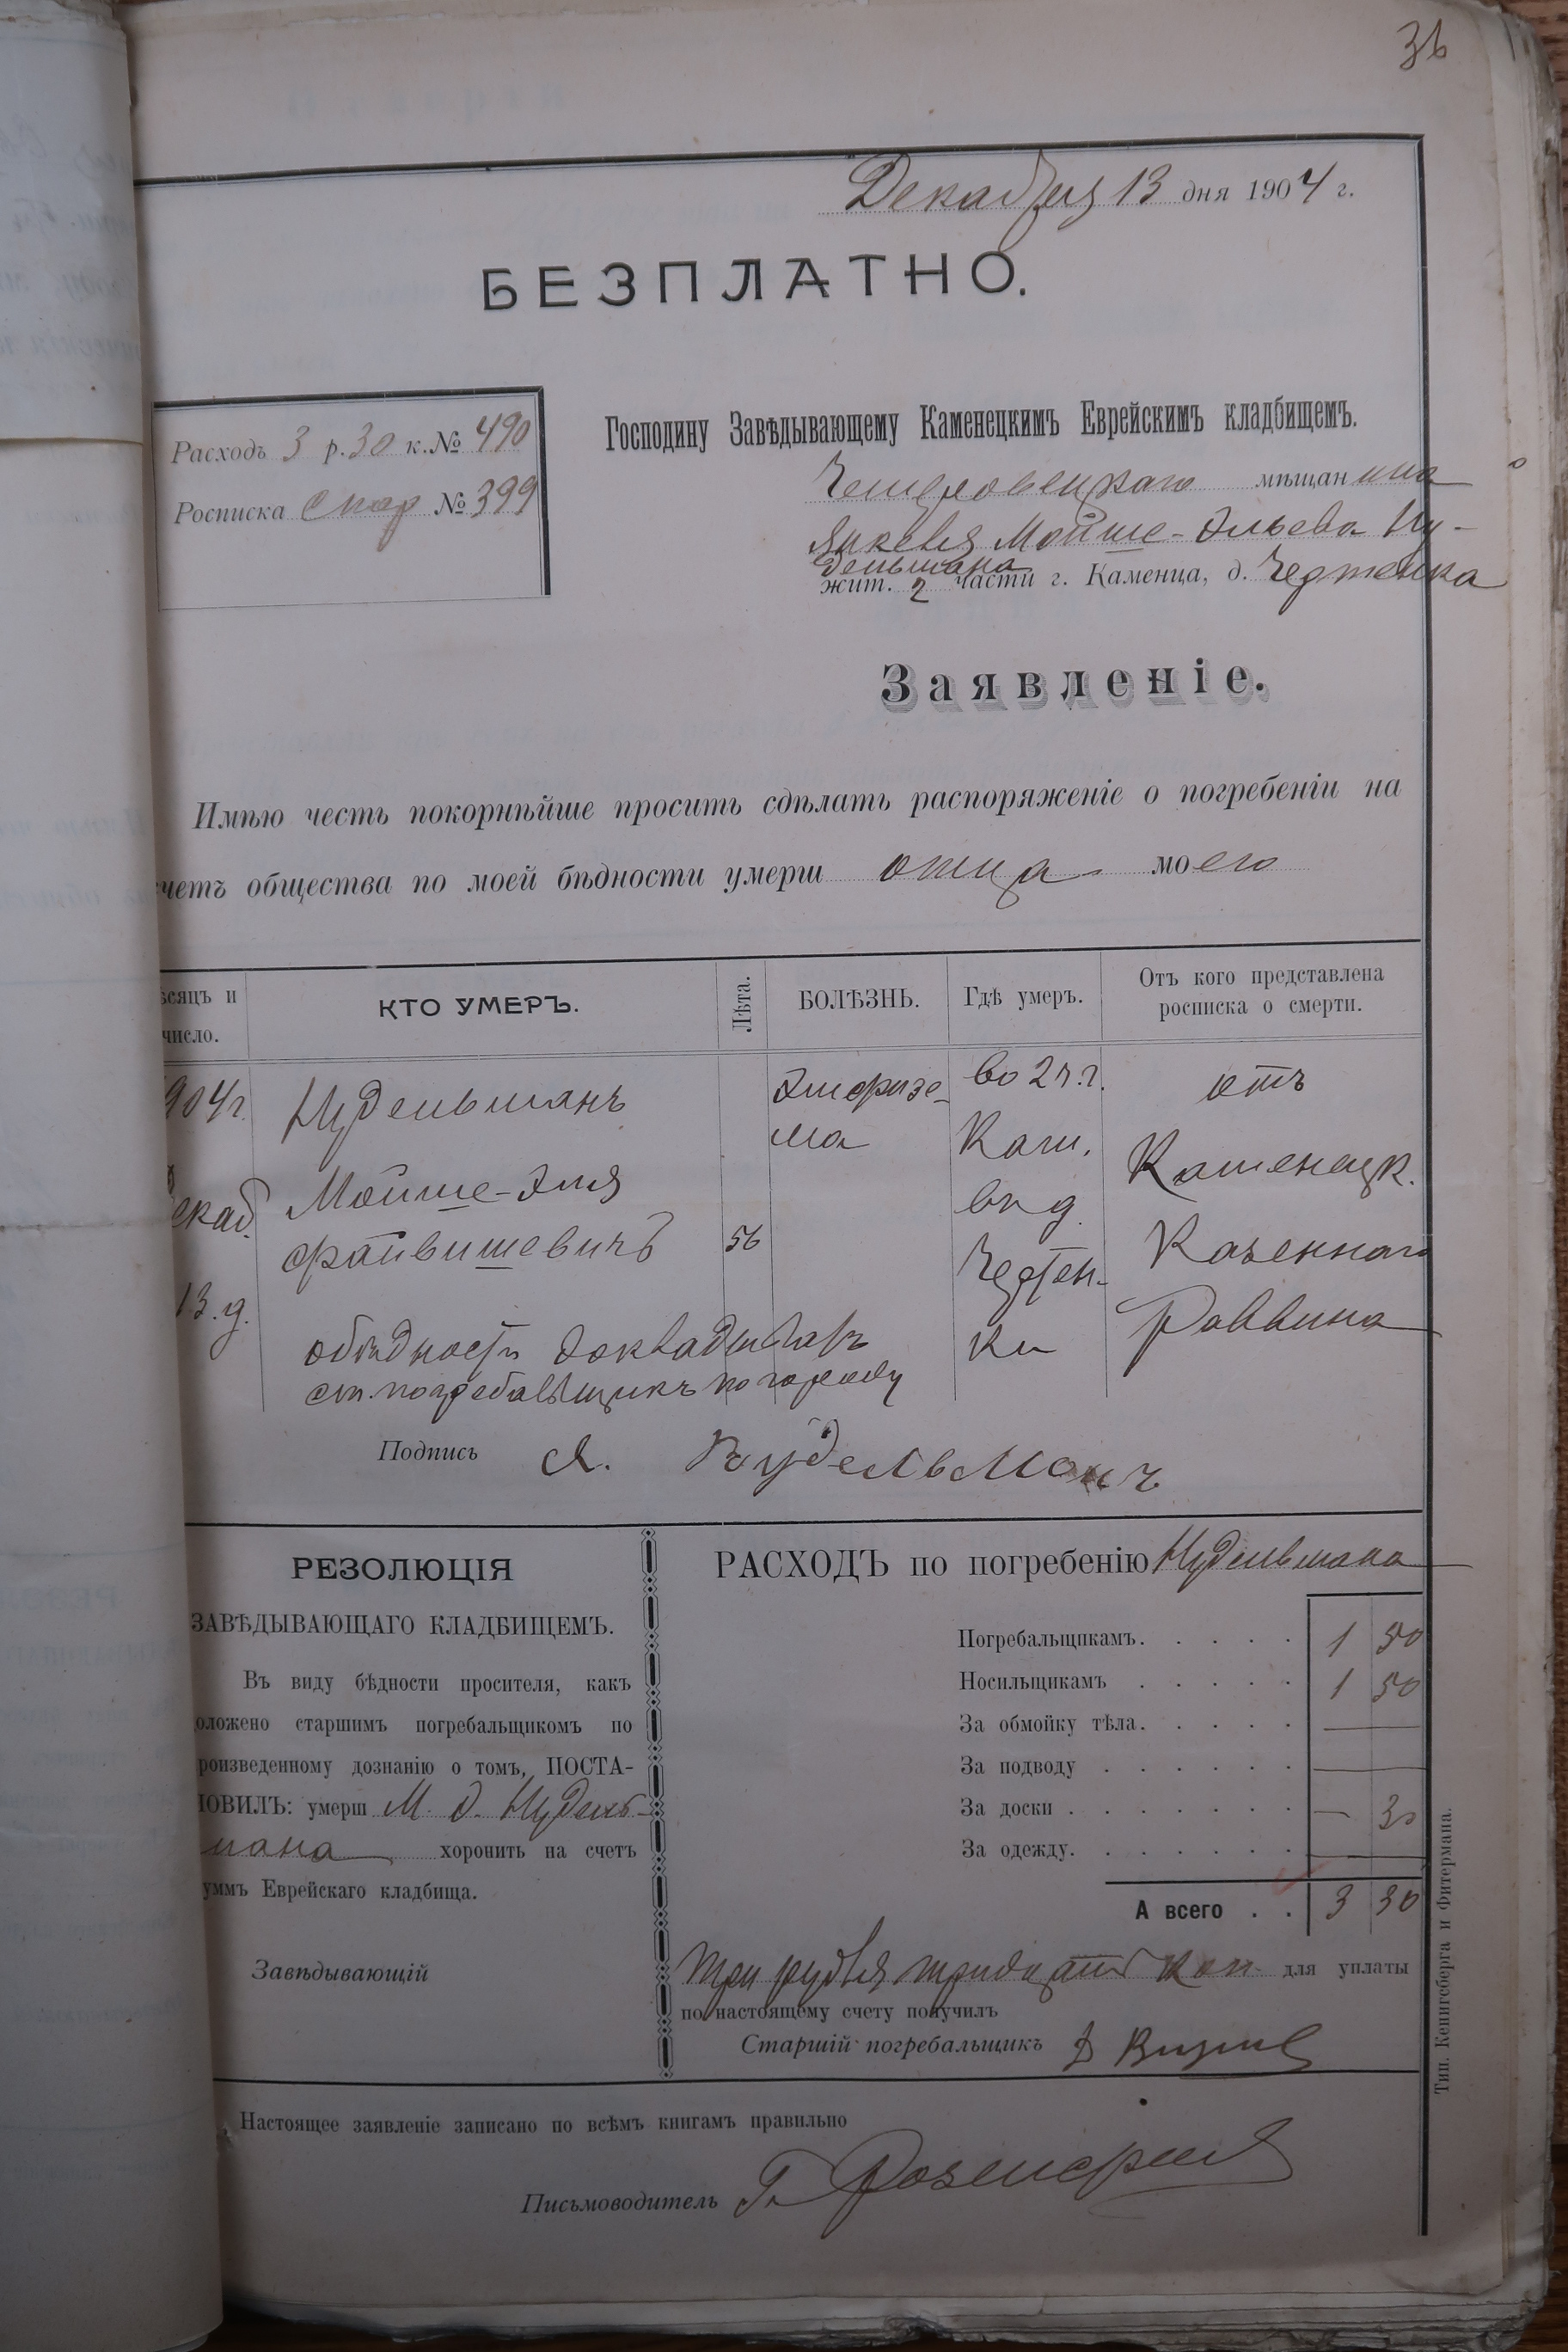 36
Декабря 13 дня 1904 г.
БЕЗПЛАТНО.
Расходъ 3 р. 30 к. № 490
Росписка № 399
Господину Завѣдывающему Каменецкимъ Еврейскимъ кладбищемъ.
мѣщанина
Янкеля Мойше-Эльева Ну-
дельмана
жит. 2 части г. Каменца, д. Чертенка
Заявленіе.
Имѣю честь покорнѣйше просить сдѣлать распоряженіе о погребеніи на
четъ общества по моей бѣдности умерш отца моего
ѣсяцъ и число.
КТО УМЕРЪ.
Лѣта.
БОЛѢЗНЬ.
Гдѣ умеръ.
Отъ кого представлена росписка о смерти.
904 г.
екаб.
13. д.
Нудельманъ
Мойше-Эля
Файвишевичъ
56
Эмфизе-
ма
во 2 ч. г.
Кам.
въ д.
Чертен-
ки
отъ
Каменецк.
Казеннаго
Раввина
о бѣдности докладывалъ
ст. погребальщикъ по городу
Подпись Я. Нудельманъ
РЕЗОЛЮЦІЯ
ЗАВѢДЫВАЮЩАГО КЛАДБИЩЕМЪ.
Въ виду бѣдности просителя, какъ
оложено старшимъ погребальщикомъ по
роизведенному дознанію о томъ, ПОСТА-
НОВИЛЪ: умерш М. Э. Нудель-
мана хоронить на счетъ
уммъ Еврейскаго кладбища.
Завѣдывающій
РАСХОДЪ по погребенію Нудельмана
Погребальщикамъ. . . . . 1 50
Носильщикамъ . . . . . 1 50
За обмойку тѣла. . . . . —
За подводу . . . . . . —
За доски . . . . . . . — 30
За одежду. . . . . . . —
А всего . . 3 30
Три рубля тридцать коп. для уплаты
по настоящему счету получилъ
Старшій погребальщикъ
Настоящее заявленіе записано по всѣмъ книгамъ правильно
Письмоводитель
Тип. Кенигсберга и Фитермана.